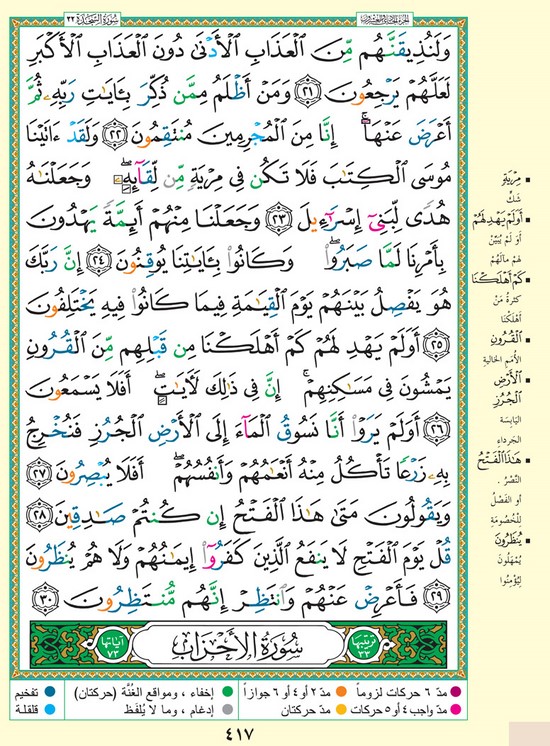 سُورَةُ السَّجْدَةِ ٣٢
الجزء الحادي والعشرون
وَلَنُذِيقَنَّهُم مِّنَ الْعَذَابِ الْأَدْنَىٰ دُونَ الْعَذَابِ الْأَكْبَرِ
لَعَلَّهُمْ يَرْجِعُونَ ٢١ وَمَنْ أَظْلَمُ مِمَّن ذُكِّرَ بِـَٔايَاتِ رَبِّهِۦ ثُمَّ
أَعْرَضَ عَنْهَآ ۚ إِنَّا مِنَ الْمُجْرِمِينَ مُنتَقِمُونَ ٢٢ وَلَقَدْ ءَاتَيْنَا
مُوسَى الْكِتَٰبَ فَلَا تَكُن فِى مِرْيَةٍ مِّن لِّقَآئِهِۦ ۖ وَجَعَلْنَٰهُ
هُدًى لِّبَنِىٓ إِسْرَٰٓءِيلَ ٢٣ وَجَعَلْنَا مِنْهُمْ أَئِمَّةً يَهْدُونَ
بِأَمْرِنَا لَمَّا صَبَرُوا۟ ۖ وَكَانُوا۟ بِـَٔايَٰتِنَا يُوقِنُونَ ٢٤ إِنَّ رَبَّكَ
هُوَ يَفْصِلُ بَيْنَهُمْ يَوْمَ الْقِيَٰمَةِ فِيمَا كَانُوا۟ فِيهِ يَخْتَلِفُونَ
٢٥ أَوَلَمْ يَهْدِ لَهُمْ كَمْ أَهْلَكْنَا مِن قَبْلِهِم مِّنَ الْقُرُونِ
يَمْشُونَ فِى مَسَٰكِنِهِمْ ۚ إِنَّ فِى ذَٰلِكَ لَـَٔايَٰتٍ ۖ أَفَلَا يَسْمَعُونَ
٢٦ أَوَلَمْ يَرَوْا۟ أَنَّا نَسُوقُ الْمَآءَ إِلَى الْأَرْضِ الْجُرُزِ فَنُخْرِجُ
بِهِۦ زَرْعًا تَأْكُلُ مِنْهُ أَنْعَٰمُهُمْ وَأَنفُسُهُمْ ۖ أَفَلَا يُبْصِرُونَ ٢٧
وَيَقُولُونَ مَتَىٰ هَٰذَا الْفَتْحُ إِن كُنتُمْ صَٰدِقِينَ ٢٨
قُلْ يَوْمَ الْفَتْحِ لَا يَنفَعُ الَّذِينَ كَفَرُوٓا۟ إِيمَٰنُهُمْ وَلَا هُمْ يُنظَرُونَ
٢٩ فَأَعْرِضْ عَنْهُمْ وَانتَظِرْ إِنَّهُم مُّنتَظِرُونَ ٣٠
ترتيبها ٣٣
سُورَةُ الأَحْزَابِ
آياتها ٧٣
مِرْيَةٍ
شَكٍّ
أَوَلَمْ يَهْدِ لَهُمْ
أَوَ لَمْ يُبَيِّنْ
لَهُمْ مَآلُهُمْ
كَمْ أَهْلَكْنَا
كَثْرَةُ مَنْ
أَهْلَكْنَا
الْقُرُونِ
الأُمَمِ الخالية
الْأَرْضِ
الْجُرُزِ
اليَابِسَة
الجَرداءِ
هَٰذَا الْفَتْحُ
النَّصْرُ .
أو الفَصْلُ
لِلْخُصُومَةِ
يُنظَرُونَ
يُمْهَلُونَ
لِيُؤْمِنُوا
مدّ ٦ حركات لزوماً مدّ ٢ أو ٤ أو ٦ جوازاً إخفاء ، ومواقع الغُنَّة (حركتان) تفخيم
مدّ واجب ٤ أو ٥ حركات مدّ حركتان إدغام ، وما لا يُلفَظ قلقلة
٤١٧